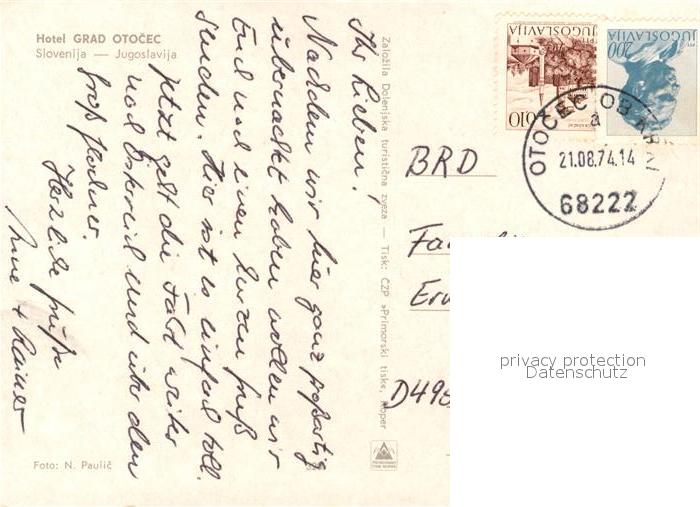 Hotel GRAD OTOČEC
Slovenija — Jugoslavija
Ihr Lieben!
Nachdem wir hier ganz großartig
übernachtet haben wollen wir
Euch noch einen kurzen Gruß
senden. Hier ist es einfach toll.
Jetzt geht die Fahrt weiter
nach Österreich und über den
Groß Glockner.
Herzliche Grüße
+ Rainer
Založila Dolenjska turistična zveza — Tisk: ČZP »Primorski tisk«, Koper
Foto: N. Paulič
JUGOSLAVIJA
0.10
JUGOSLAVIJA
2.00
OTOČEC OB KRKI
a
21.08.74.14
68222
BRD
Fa
Er
D498
privacy protection
Datenschutz